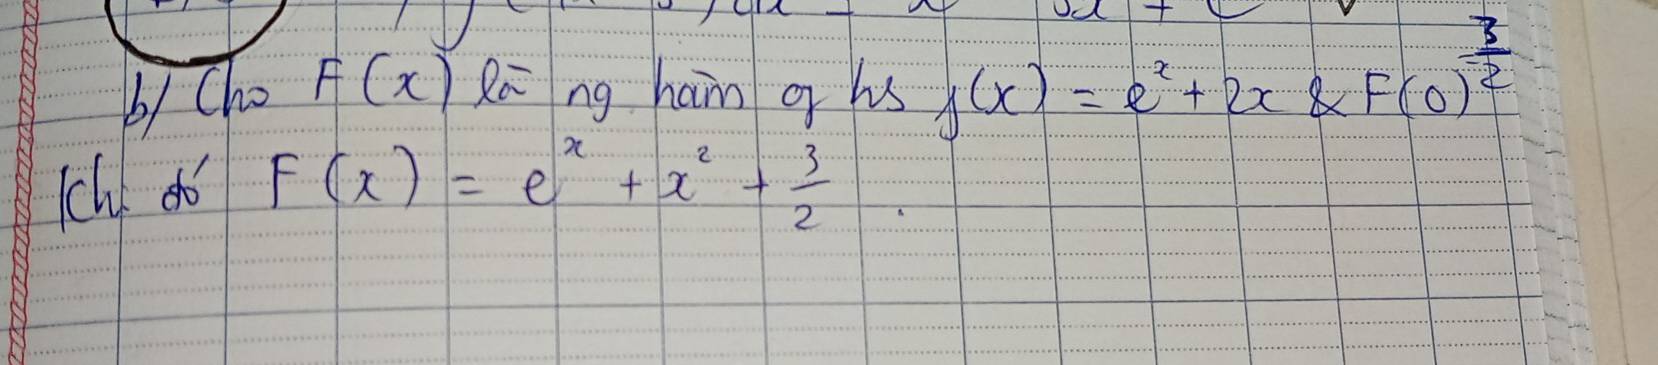 b/ Cho F(x) là ng hàm of hs f(x) = e^x + 2x & F(0) = 3/2
Khi đó F(x) = e^x + x^2 + 3/2.